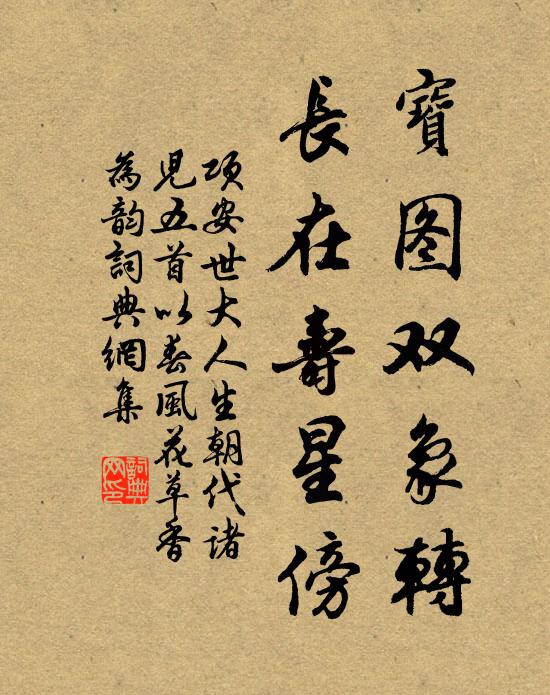 寶图双象轉
長在壽星傍
项安世大人生朝代诸
儿五首以春風花草香
為韵詞典網集
詞典网印